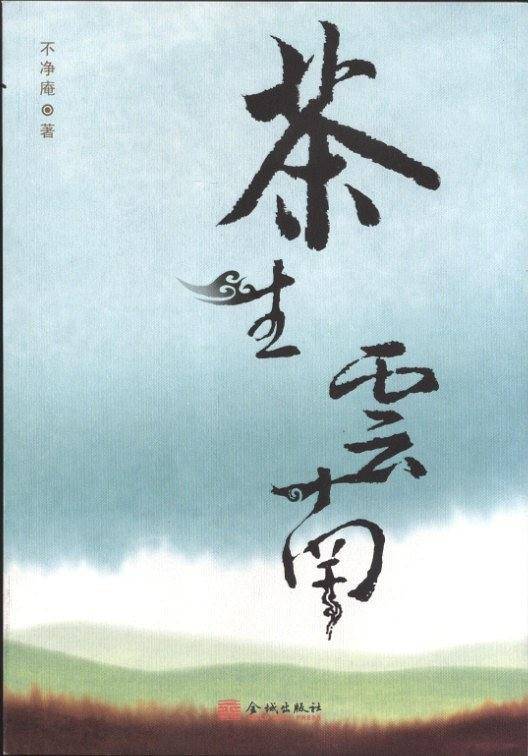 不净庵◎著
茶生雲南
金城出版社